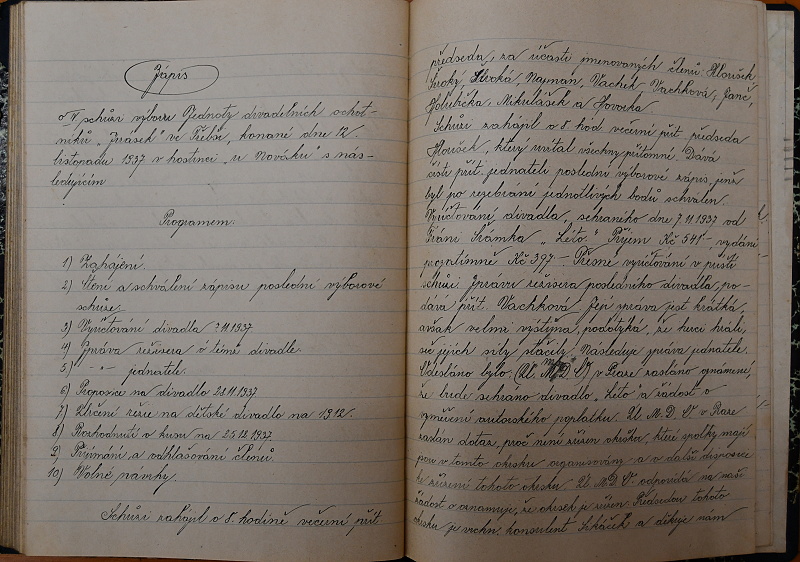 Zápis
o IV. schůzi výboru Jednoty divadelních ochot-
níků "Jirásek" ve Třebši, konané dne 12.
listopadu 1937 v hostinci "u Nováků" s nás-
ledujícím
Programem.
1) Zahájení.
2) Čtení a schválení zápisu poslední výborové
schůze.
3) Vyúčtování divadla 7.11.1937.
4) Zpráva režiséra o témže divadle.
5) -"- jednatele.
6) Propozice na divadlo 28.11.1937
7) Určení režie na dětské divadlo na 19.12.
8) Rozhodnutí o kusu na 25.12.1937.
9) Přijímání a odhlašování členů.
10) Volné návrhy.
Schůzi zahájil o 8. hodině večerní přít.
předseda, za účasti jmenovaných členů: Hloušek
Široký, Divoká, Najman, Vachek, Vachková, Janč,
Holubička, Mikulášek a Hovorka
Schůzi zahájil o 8 hod. večerní přít. předseda
Hloušek, který uvítal všechny přítomné. Dává
čísti přít. jednateli poslední výborové zápis, jenž
byl po rozebrání jednotlivých bodů schválen.
Vyúčtování divadla, sehraného dne 7.11.1937 od
Fráni Šrámka "Léto." Příjem Kč 541.-, vydání
pozatímně Kč 397.- Přesné vyúčtování v příští
schůzi. Zprávu režiséra posledního divadla, po-
dává přít. Vachková. Její zpráva jest krátká,
avšak velmi výstižná, podotýká, že herci hráli,
seč jejich síly stačily. Následuje zpráva jednatele.
Odesláno bylo (Ú. M. D. O.) v Praze zasláno oznámení,
že bude sehráno divadlo "Léto" a žádost o
vyměření autorského poplatku. Ú. M. D. O. v Praze
zaslán dotaz, proč není zřízen okrsek, které spolky mají
jsou v tomto okrsku organisovány a o další disposice
ke zřízení tohoto okrsku. Ú. M. D. O. odpovídá na naši
žádost a oznamuje, že okrsek je zřízen. Předsedou tohoto
okrsku je vrchn. konsulent a děkuje nám